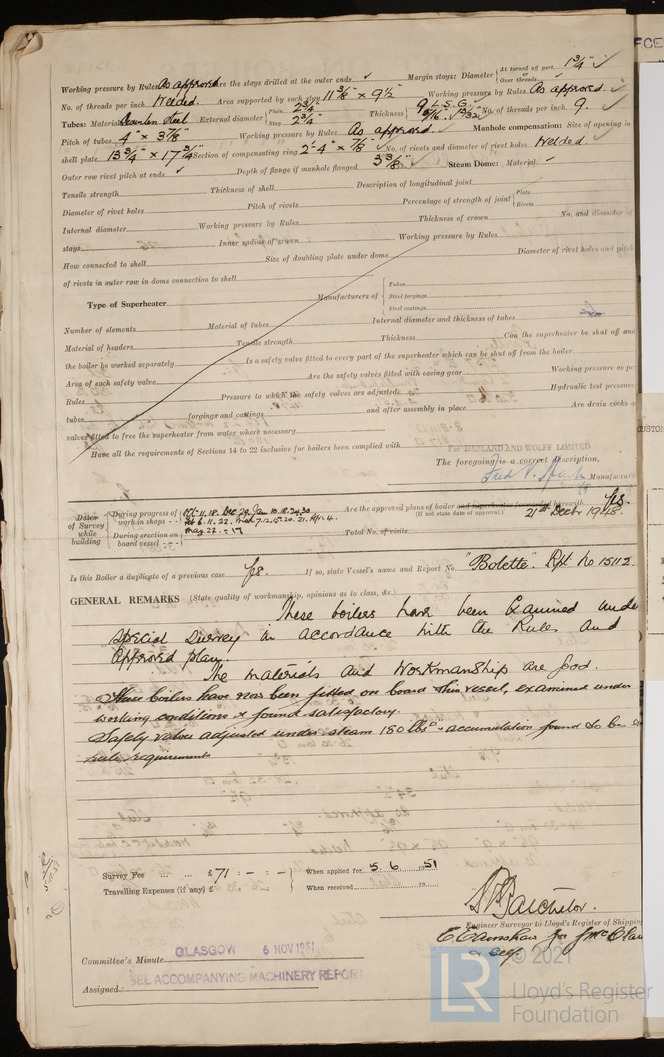 Working pressure by Rules As approved Are the stays drilled at the outer ends ✓ Margin stays: Diameter { At turned off part, 1 3/4" ✓ or Over threads ✓
No. of threads per inch Welded. Area supported by each stay 11 3/8" × 9 1/2" Working pressure by Rules As approved. ✓
Tubes: Material Seamless Steel External diameter { Plain 2 3/4" Stay 2 3/4" Thickness { 9 L.S.G. 5/16" ✓ No. of threads per inch 9.
Pitch of tubes 4" × 3 7/8" Working pressure by Rules As approved. Manhole compensation: Size of opening in
shell plate 13 3/4" × 17 3/4" Section of compensating ring 2'-4" × 7/8" ✓ No. of rivets and diameter of rivet holes Welded.
Outer row rivet pitch at ends ✓ Depth of flange if manhole flanged 3 3/8" Steam Dome: Material ✓
Tensile strength Thickness of shell Description of longitudinal joint
Diameter of rivet holes Pitch of rivets Percentage of strength of joint { Plate Rivets
Internal diameter Working pressure by Rules Thickness of crown No. and diameter of
stays Inner radius of crown Working pressure by Rules
How connected to shell Size of doubling plate under dome Diameter of rivet holes and pitch
of rivets in outer row in dome connection to shell
Type of Superheater Manufacturers of { Tubes Steel forgings Steel castings
Number of elements Material of tubes Internal diameter and thickness of tubes
Material of headers Tensile strength Thickness Can the superheater be shut off and
the boiler be worked separately Is a safety valve fitted to every part of the superheater which can be shut off from the boiler
Area of each safety valve Are the safety valves fitted with easing gear Working pressure as per
Rules Pressure to which the safety valves are adjusted Hydraulic test pressure
tubes forgings and castings and after assembly in place Are drain cocks or
valves fitted to free the superheater from water where necessary
Have all the requirements of Sections 14 to 22 inclusive for boilers been complied with
For HARLAND AND WOLFF LIMITED
The foregoing is a correct description,
Manufacturer
Dates of Survey while building { During progress of work in shops - - Oct. 11. 18. Dec 29. Jan 10. 18. 24. 30 Feb 6. 11. 22. Mar 7. 12. 15. 20. 21. Apr. 4.
During erection on board vessel - - - May 22 - 17
Are the approved plans of boiler and superheater forwarded herewith Yes.
(If not state date of approval.) 21st Decr. 1948.
Total No. of visits
Is this Boiler a duplicate of a previous case Yes. If so, state Vessel's name and Report No. "Bolette". Rpt No 15112
GENERAL REMARKS (State quality of workmanship, opinions as to class, &c.)
These boilers have been Examined under
Special Survey in accordance with the Rules and
Approved plan.
The materials and Workmanship are good.
These boilers have now been fitted on board this vessel, examined under
working conditions & found satisfactory.
Safety valves adjusted under steam 180 lbs □" & accumulation found to be
rule requirements
Survey Fee ... ... £71 : - : - When applied for 5. 6. 51
Travelling Expenses (if any) £ When received 19
Engineer Surveyor to Lloyd's Register of Shipping
Committee's Minute GLASGOW 6 NOV 1951
Assigned SEE ACCOMPANYING MACHINERY REPORT
LR © 2021
Lloyd's Register
Foundation